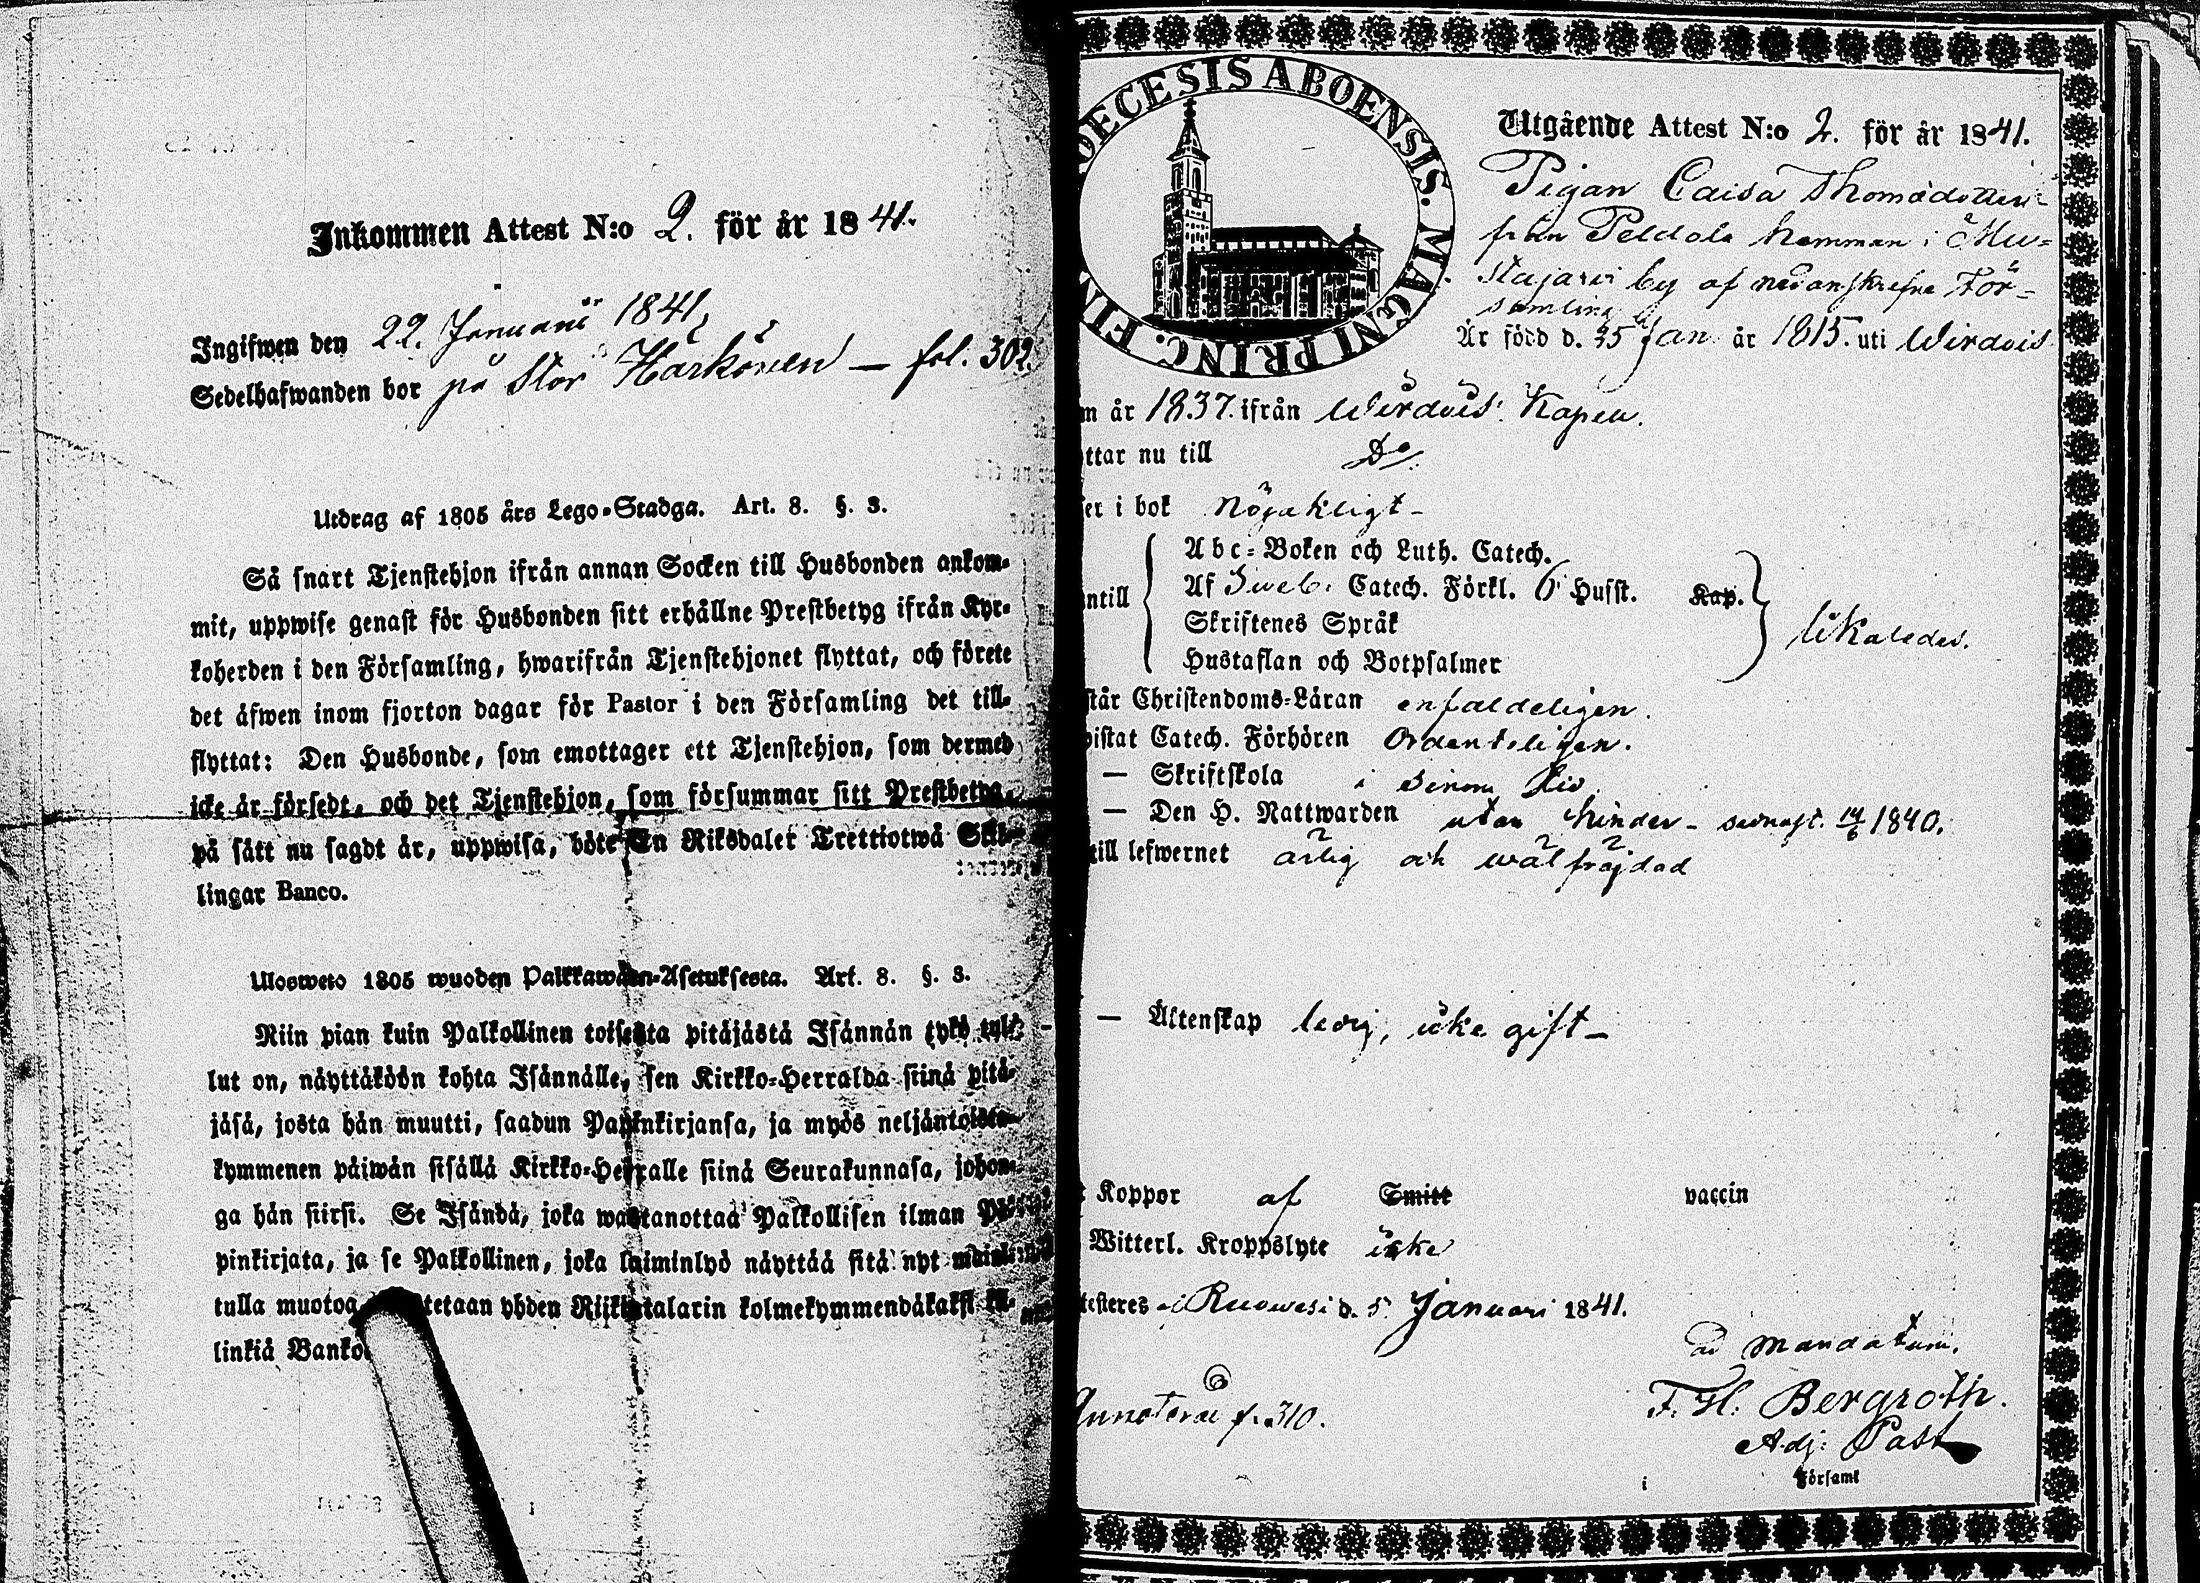 Inkommen Attest N:o 2. för år 1841.
Ingifwen den 22. Januarii 1841,
Sedelhafwanden bor på Stor Härkönen — fol. 302.
Utdrag af 1805 års Lego-Stadga. Art. 8. §. 3.
Så snart Tjenstehjon ifrån annan Socken till Husbonden ankom-
mit, uppwise genast för Husbonden sitt erhållne Prestbetyg ifrån Kyr-
koherden i den Församling, hwarifrån Tjenstehjonet flyttat, och förete
det äfwen inom fjorton dagar för Pastor i den Församling det till-
flyttat: Den Husbonde, som emottager ett Tjenstehjon, som dermed
icke är försedt, och det Tjenstehjon, som försummar sitt Prestbetyg,
på sätt nu sagdt är, uppwisa, böte En Riksdaler Trettiotwå Skil-
lingar Banco.
Uloswеto 1805 wuoden Palkkawäen-Asetuksesta. Art. 8. §. 3.
Niin pian kuin Palkollinen toisesta pitäjästä Isännän tykö tul-
lut on, näyttäköön kohta Isännälle, sen Kirkko-Herralda siinä pitä-
jäsä, josta hän muutti, saadun Papinkirjansa, ja myös neljäntoista-
kymmenen päiwän sisällä Kirkko-Herralle siinä Seurakunnasa, johon-
ga hän siirsi. Se Isändä, joka wastanottaa Palkollisen ilman Pa-
pinkirjata, ja se Palkollinen, joka laiminlyö näyttää sitä nyt
tulla muotoa tetaan yhden Riikintalarin kolmekymmendäkaksi kil-
linkiä Banko
DECESIS ABOENSIS. MAGNI PRINC. FIN
Utgående Attest N:o 2. för år 1841.
Pigan Caisa Thomædotter
från Peldola hemman i Mu-
stajärvi by af nedanskrefne För-
samling
Är född d. 25 Jan år 1815. uti Wirdois
m år 1837. ifrån Wirdois Kapell.
ttar nu till Do
er i bok nöjaktligt -
ntill
Abc-Boken och Luth. Catech.
Af Sweb. Catech. Förkl. 6 Husst. Kap.
Skriftenes Språk
Hustaflan och Botpsalmer
likaledes.
står Christendoms-Läran enfaldeligen.
vistat Catech. Förhören Ordenteligen.
— Skriftskola i sinom tid
— Den H. Nattwarden utan hinder - sednast. 14/6 1840.
till lefwernet ärlig och wälfräjdad
— Äktenskap ledig, icke gift —
Koppor af Smitt vaccin
Witterl. Kroppslyte icke
testeres af Ruowesi d. 5 Januari 1841.
ad mandatum.
F. H. Bergroth.
Adj: Past
i Församl
Annoterae f. 310.